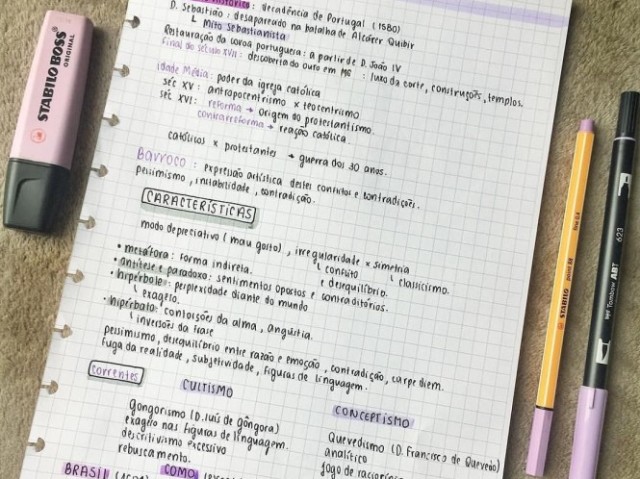 histórico: decadência de Portugal (1580)
D. Sebastião: desapareado na batalha de Alcácer Quibir
Mito Sebastianista
Restauração da coroa portuguesa: a partir de D. João IV
Final do século XVII: descoberta do ouro em MG: luxo da corte, construções, templos.
Idade Média: poder da igreja católica
séc XV: antropocentrismo x teocentrismo
séc XVI: reforma → origem do protestantismo.
contrarreforma → reação católica.
católicos x protestantes → guerra dos 30 anos.
Barroco: expressão artística destes conflitos e contradições.
pessimismo, instabilidade, contradição.
CARACTERÍSTICAS
modo depreciativo (mau gosto), irregularidade x simetria
conflito classicismo.
e desequilíbrio.
• metáfora: forma indireta.
• antítese e paradoxo: sentimentos opostos e contraditórios.
• hipérbole: perplexidade diante do mundo
exagero.
• hipérbato: contorsões da alma, angústia.
inversões da frase
pessimismo, desequilíbrio entre razão e emoção, contradição, carpe diem.
Fuga da realidade, subjetividade, figuras de linguagem.
correntes
CULTISMO
Gongorismo (D. Luís de Gôngora)
exagero nas figuras de linguagem.
descritivismo excessivo
rebuscamento.
CONCEPTISMO
Quevedismo (D. Francisco de Quevedo)
analítico
jogo de
BRASIL
COMO
STABILO BOSS
ORIGINAL
STABILO point 88
fine 0.4
Tombow ABT
623